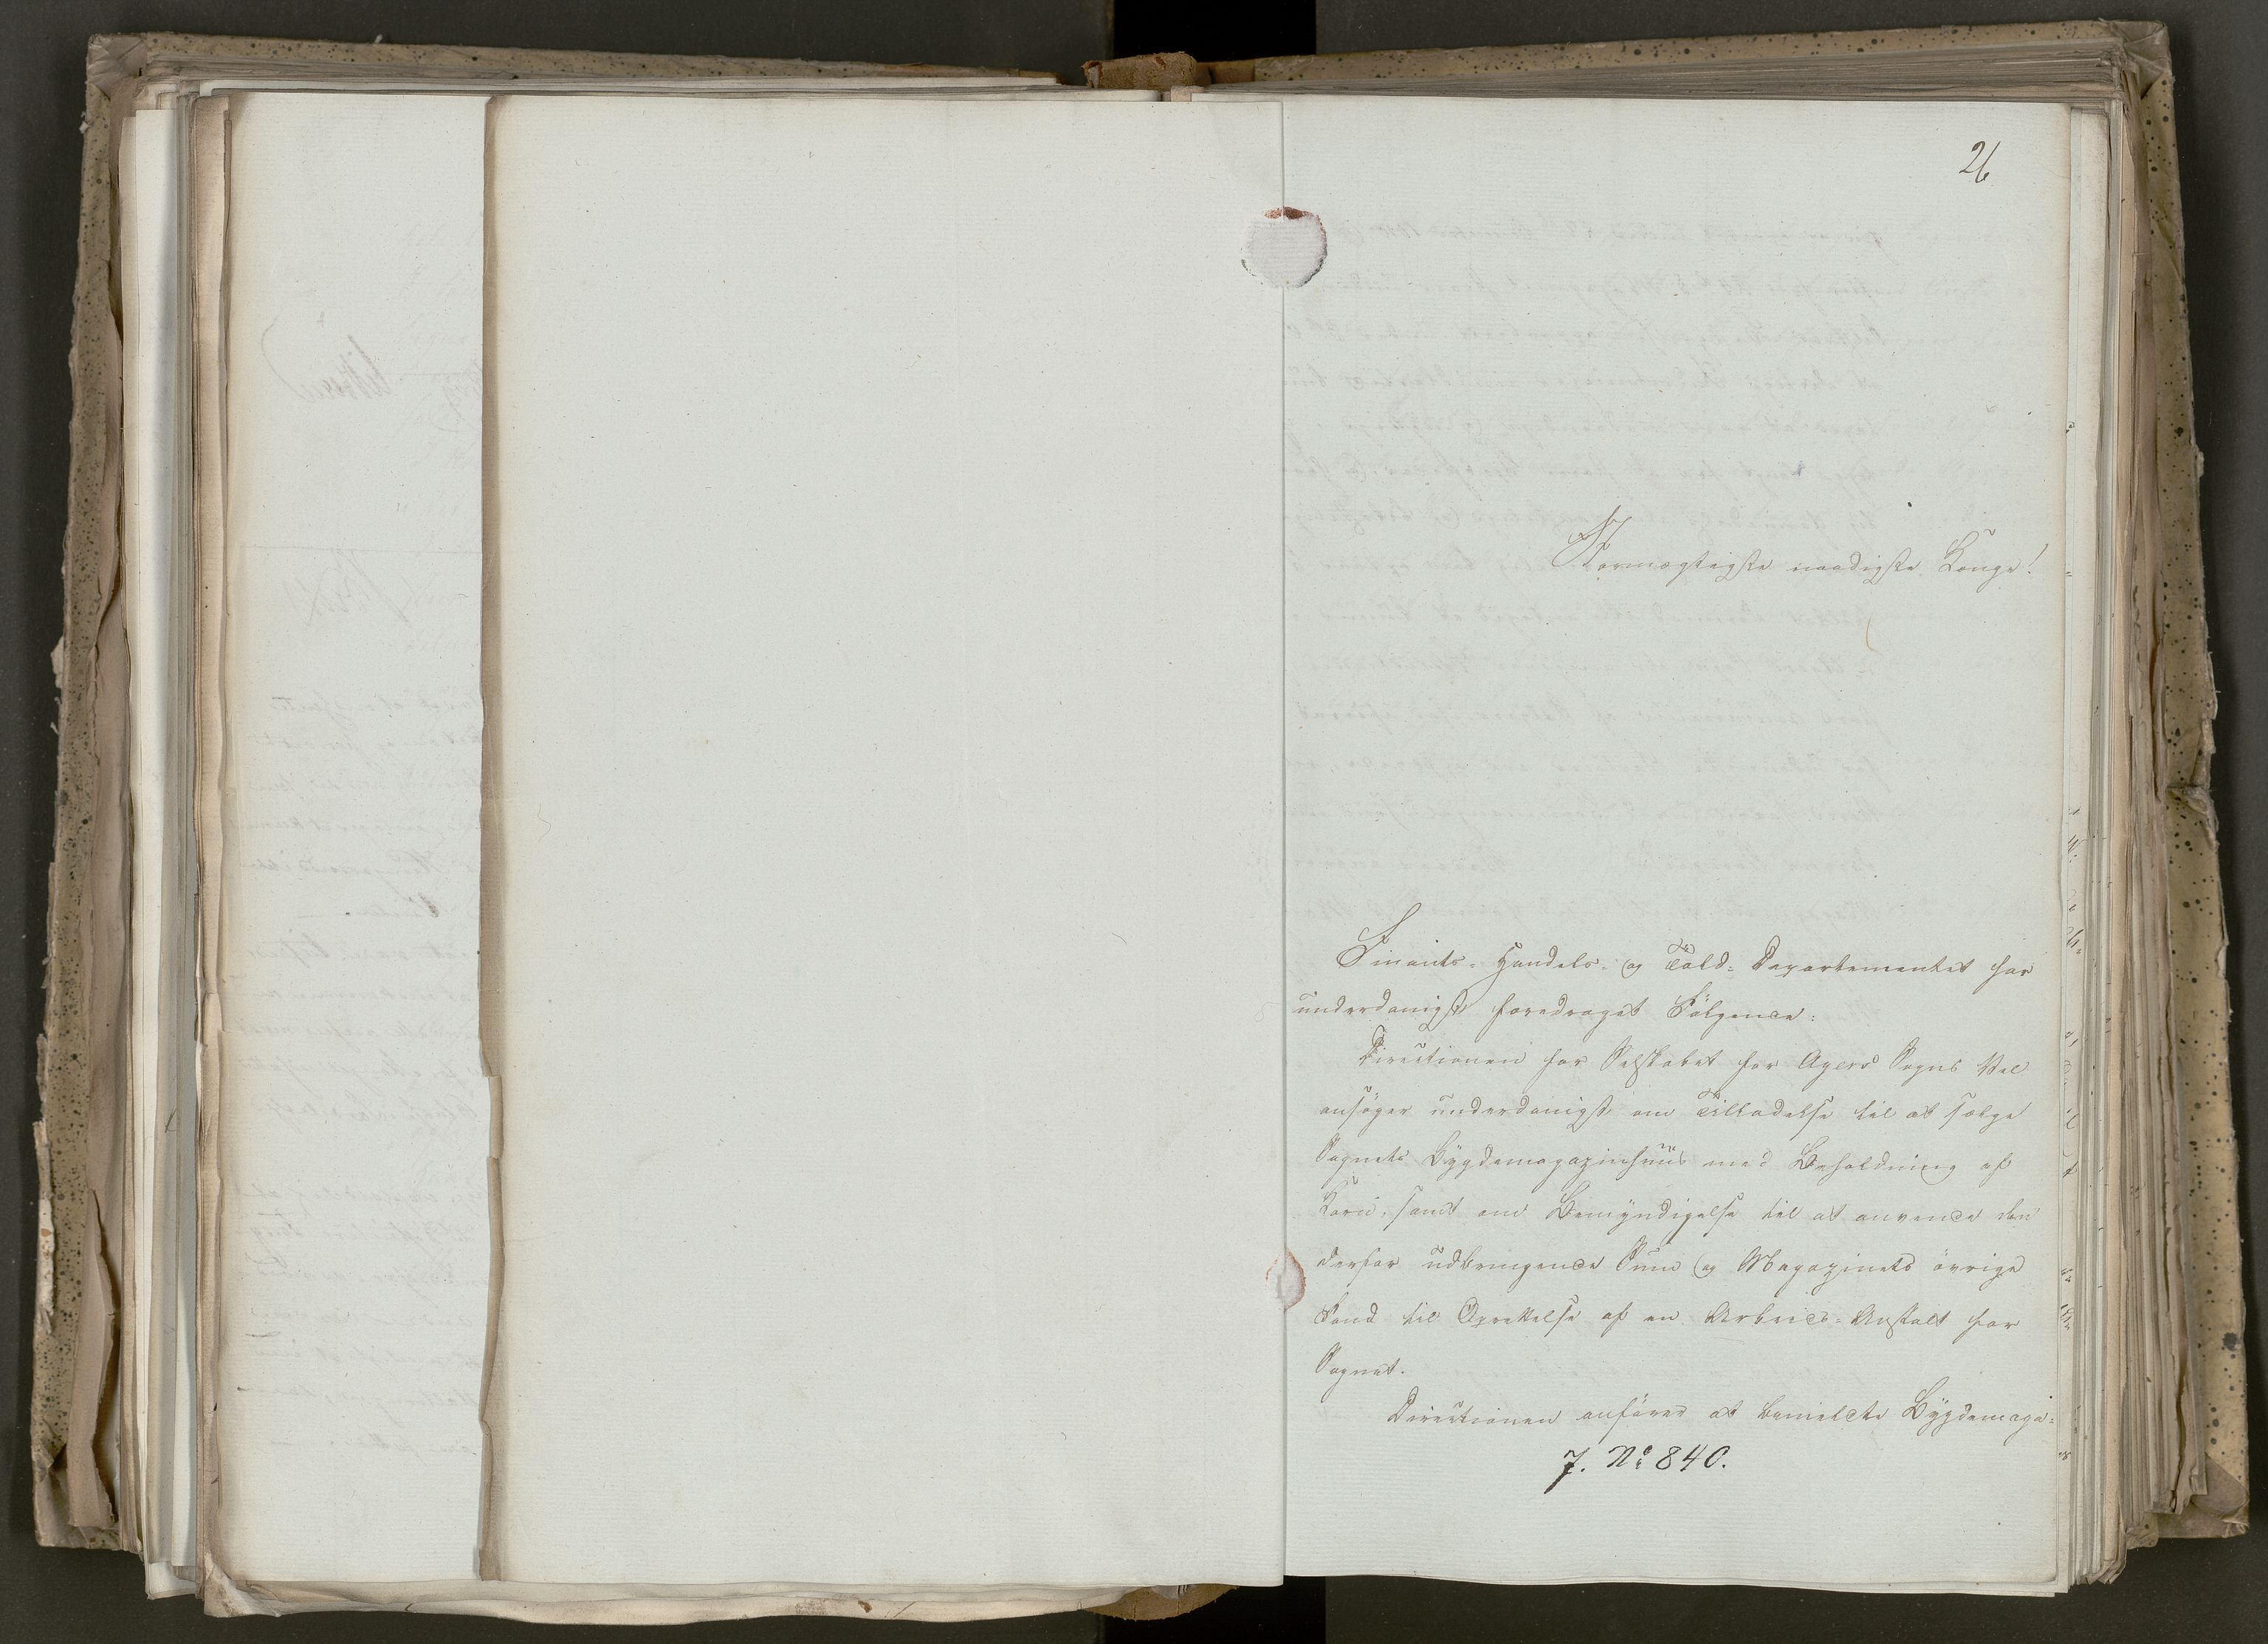 26
Stormægtigste naadigste Konge!
Finants- Handels- og Told- Departementet har
underdanigst foredraget Følgende:
Directionen for Selskabet for Agers Sogns Vel
ansøger underdanigst om Tilladelse til at sælge
Sognets Bygdemagazinhuus med Beholdning af
Korn, samt om Bemyndigelse til at anvende den
derfor udbringende Sum og Magazinets øvrige
Fond til Oprettelse af en Arbeids-Anstalt for
Sognet.
Directionen anfører at bemeldte Bygdemaga-
7. No 840.